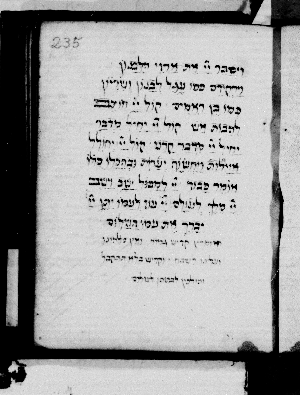 235
וישבר יי את ארזי הלבנון
וירקידם כמו עגל לבנון ושריון
כמו בן ראמים קול יי חוצב
להבות אש קול יי יחיל מדבר
יחיל יי מדבר קדש קול יי יחולל
אילות ויחשוף יערות ובהיכלו כלו
אומר כבוד יי למבול ישב וישב
יי מלך לעולם יי עוז לעמו יתן יי
יברך את עמו בשלום